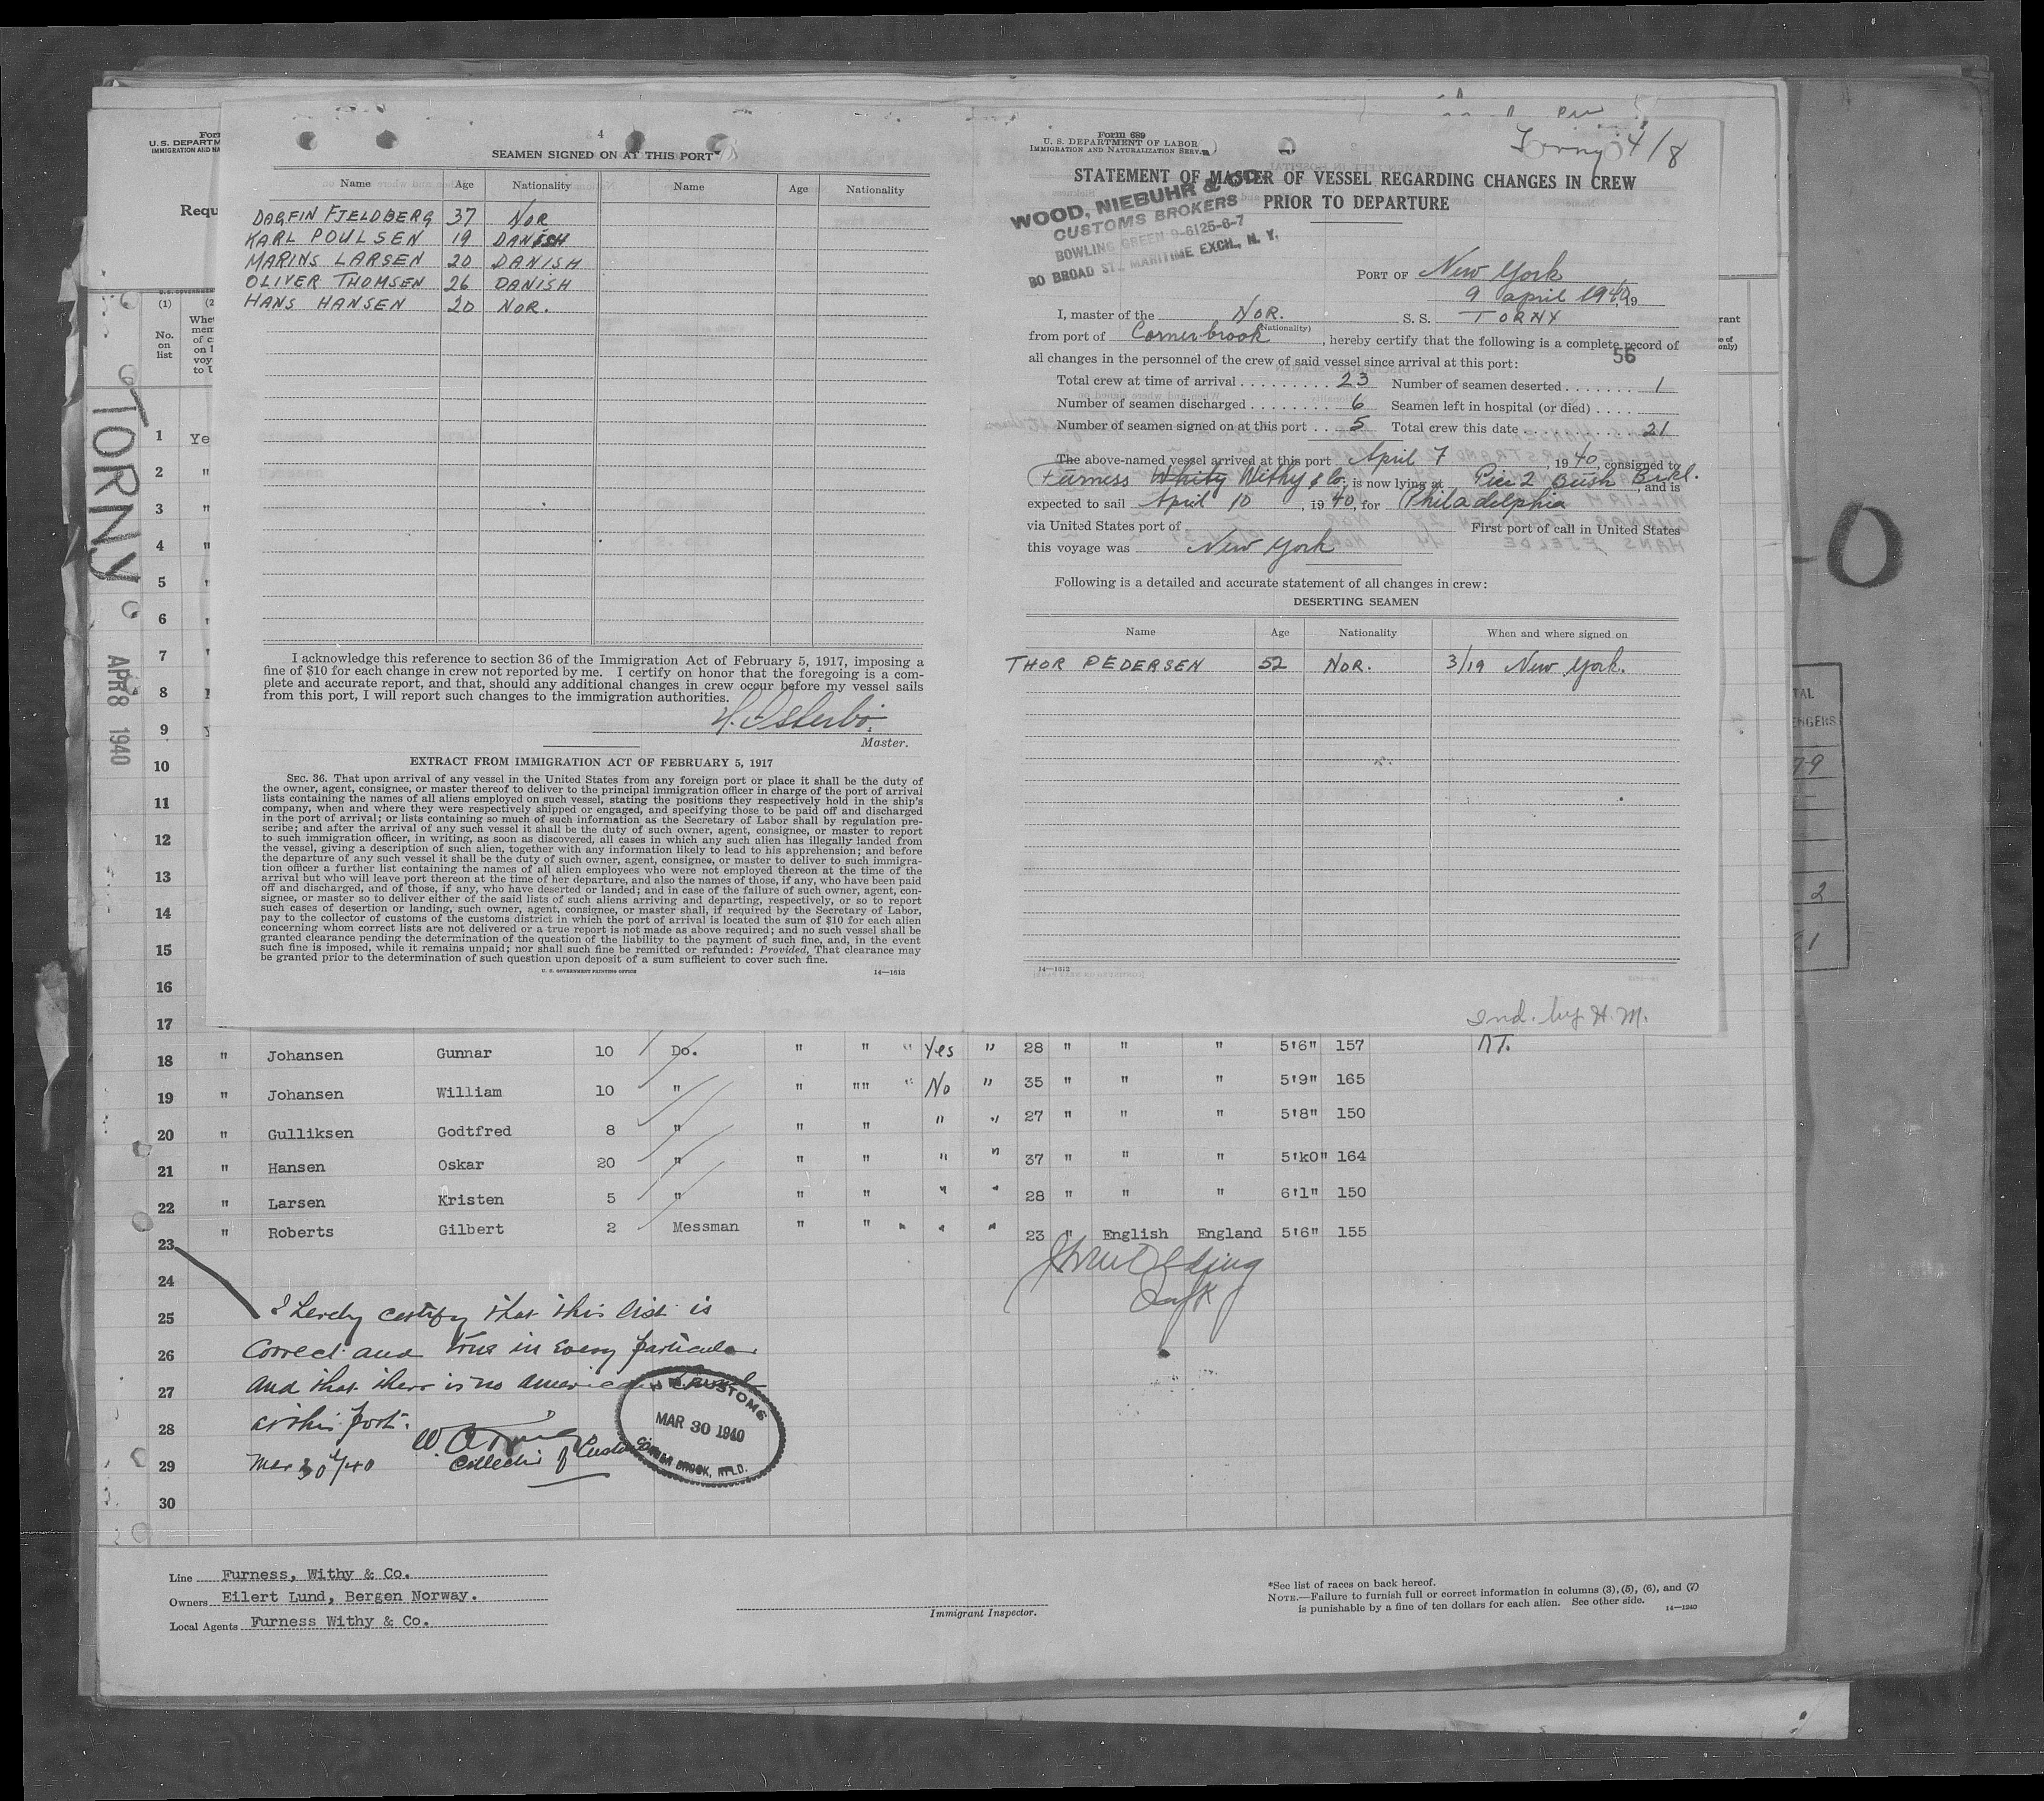 4
SEAMEN SIGNED ON AT THIS PORT
Name Age Nationality Name Age Nationality
DAGFIN FJELDBERG 37 NOR
KARL POULSEN 19 DANISH
MARINS LARSEN 20 DANISH
OLIVER THOMSEN 26 DANISH
HANS HANSEN 20 NOR.
I acknowledge this reference to section 36 of the Immigration Act of February 5, 1917, imposing a
fine of $10 for each change in crew not reported by me. I certify on honor that the foregoing is a com-
plete and accurate report, and that, should any additional changes in crew occur before my vessel sails
from this port, I will report such changes to the immigration authorities.
H. Osterbö.
Master.
EXTRACT FROM IMMIGRATION ACT OF FEBRUARY 5, 1917
SEC. 36. That upon arrival of any vessel in the United States from any foreign port or place it shall be the duty of
the owner, agent, consignee, or master thereof to deliver to the principal immigration officer in charge of the port of arrival
lists containing the names of all aliens employed on such vessel, stating the positions they respectively hold in the ship's
company, when and where they were respectively shipped or engaged, and specifying those to be paid off and discharged
in the port of arrival; or lists containing so much of such information as the Secretary of Labor shall by regulation pre-
scribe; and after the arrival of any such vessel it shall be the duty of such owner, agent, consignee, or master to report
to such immigration officer, in writing, as soon as discovered, all cases in which any such alien has illegally landed from
the vessel, giving a description of such alien, together with any information likely to lead to his apprehension; and before
the departure of any such vessel it shall be the duty of such owner, agent, consignee, or master to deliver to such immigra-
tion officer a further list containing the names of all alien employees who were not employed thereon at the time of the
arrival but who will leave port thereon at the time of her departure, and also the names of those, if any, who have been paid
off and discharged, and of those, if any, who have deserted or landed; and in case of the failure of such owner, agent, con-
signee, or master so to deliver either of the said lists of such aliens arriving and departing, respectively, or so to report
such cases of desertion or landing, such owner, agent, consignee, or master shall, if required by the Secretary of Labor,
pay to the collector of customs of the customs district in which the port of arrival is located the sum of $10 for each alien
concerning whom correct lists are not delivered or a true report is not made as above required; and no such vessel shall be
granted clearance pending the determination of the question of the liability to the payment of such fine, and, in the event
such fine is imposed, while it remains unpaid; nor shall such fine be remitted or refunded: Provided, That clearance may
be granted prior to the determination of such question upon deposit of a sum sufficient to cover such fine.
U. S. GOVERNMENT PRINTING OFFICE 14—1613
Form 689
U. S. DEPARTMENT OF LABOR
IMMIGRATION AND NATURALIZATION SERV.
Torny 4/8
STATEMENT OF MASTER OF VESSEL REGARDING CHANGES IN CREW
PRIOR TO DEPARTURE
WOOD, NIEBUHR & CO.
CUSTOMS BROKERS
BOWLING GREEN 9-6125-6-7
80 BROAD ST., MARITIME EXCH., N. Y.
PORT OF New York
9 april 1940, 19
I, master of the NOR. S. S. TORNY
(Nationality)
from port of Cornerbrook, hereby certify that the following is a complete record of
all changes in the personnel of the crew of said vessel since arrival at this port:
56
Total crew at time of arrival 23 Number of seamen deserted 1
Number of seamen discharged 6 Seamen left in hospital (or died)
Number of seamen signed on at this port 5 Total crew this date 21
The above-named vessel arrived at this port April 7, 1940, consigned to
Furness Whity Withy & Co, is now lying at Pier 2 Bush Brkl., and is
expected to sail April 10, 1940, for Philadelphia
via United States port of First port of call in United States
this voyage was New York
Following is a detailed and accurate statement of all changes in crew:
DESERTING SEAMEN
Name Age Nationality When and where signed on
THOR PEDERSEN 52 NOR. 3/19 New York.
14—1612
Ind. by H. M.
U.S. DEPARTM
IMMIGRATION AND NA
Requ
(1)
No.
on
list
TORNY
APR 8 1940
1 Ye
2 "
3 "
4 "
5 "
6
7
8
9
10
11
12
13
14
15
16
17
18 " Johansen Gunnar 10 Do. " " " Yes " 28 " " " 5'6" 157
19 " Johansen William 10 " " "" " No " 35 " " " 5'9" 165
20 " Gulliksen Godtfred 8 " " " " " 27 " " " 5'8" 150
21 " Hansen Oskar 20 " " " " " 37 " " " 5'k0" 164
22 " Larsen Kristen 5 " " " " " 28 " " " 6'1" 150
23 " Roberts Gilbert 2 Messman " " " " " 23 " English England 5'6" 155
24
25 I hereby certify that this list is
26 Correct and true in every particular
27 and that there is no American Consul
28 at this port.
29 Mar 30/40
Collector of Customs
30
H M CUSTOMS
MAR 30 1940
CORNER BROOK, NFLD.
Line Furness, Withy & Co.
Owners Eilert Lund, Bergen Norway.
Local Agents Furness Withy & Co.
Immigrant Inspector.
*See list of races on back hereof.
NOTE.—Failure to furnish full or correct information in columns (3), (5), (6), and (7)
is punishable by a fine of ten dollars for each alien. See other side. 14—1240